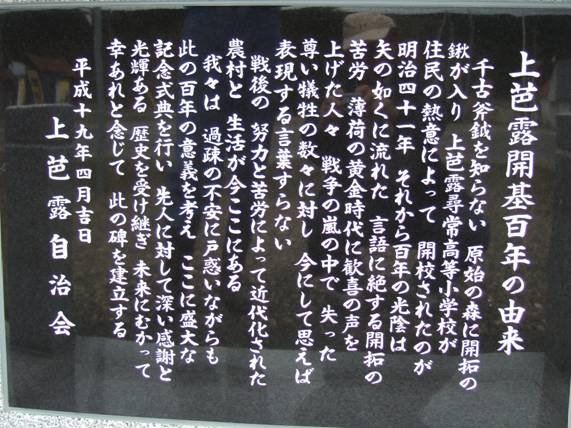 上芭露開基百年の由来
千古斧鉞を知らない 原始の森に開拓の
鍬が入り 上芭露尋常高等小学校が
住民の熱意によって 開校されたのが
明治四十一年 それから百年の光陰は
矢の如くに流れた 言語に絶する開拓の
苦労 薄荷の黄金時代に歓喜の声を
上げた人々 戦争の嵐の中で 失った
尊い犠牲の数々に対し 今にして思えば
表現する言葉すらない
戦後の 努力と苦労によって近代化された
農村と 生活が今ここにある
我々は 過疎の不安に戸惑いながらも
此の百年の意義を考え ここに盛大な
記念式典を行い 先人に対して深い感謝と
光輝ある 歴史を受け継ぎ 未来にむかって
幸あれと念じて 此の碑を建立する
平成十九年四月吉日
上芭露自治会